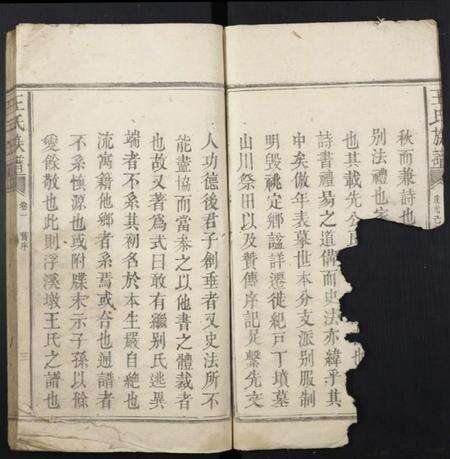 王氏族譜
秋而兼詩也
別法禮也
也其載先
詩書禮易之道備而史法亦緯乎其
中矣倣年表墓世本分支派別服制
明毀祧定鄉諡詳遷徙紀戸丁墳墓
山川祭田以及贊傳序記是繫先文
人功德後君子創垂者又史法所不
能盡協而當叅之以他書之體裁者
也故又著為式曰敢有繼别氏逃異
端者不系其初名於本生嚴自絶也
流寓籍他鄉者系焉或合也通譜者
不系慎源也或附牒末示子孫以餘
愛餕散也此則浮溪墩王氏之譜也
王氏族譜 卷一 舊序 三